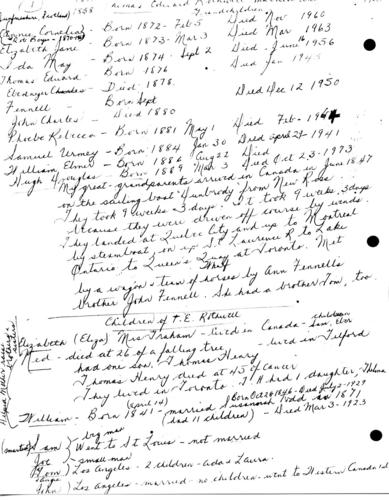 1858
Born 1872 - Feb 5 Died Nov 1960
Elizabeth Jane - Born 1873 - Mar 3 Died Mar 1963
Ida May - Born 1874 Sept 2 Died - June 1956
Thomas Eduard - Born 1876 Died Jan
Ebenezer Charles - Died 1878
Fennell - Born Sept Died Dec 12 1950
John Charles - Died 1880
Phoebe Rebecca - Born 1881 May 1 Died Feb -
Samuel Verney - Born 1884 Jan 30 Died April 21 - 1941
William Elmer - Born 1886 Aug 22 Died Oct 23 - 1973
Hugh Douglas - Born 1889 Mar 3
My great-grandparents arrived in Canada in June 18 47
on the sailing boat Dunbrody from New Ross
They took 9 weeks 3 days. It took 9 weeks 3 days
because they were driven off course by winds.
They landed at Quebec City and up to Montreal
by steamboat, on up St. Lawrence R to Lake
Ontario to Queen's Quay at Toronto. Met
by a wagon & team of horses by Ann Fennell's
brother John Fennell. She had a brother Tom, too.
Children of T. E. Rothwell
Elizabeth (Eliza) Mrs Graham - lived in Canada - children
Ned - died at 26 of a falling tree, - lived in Tilford
had one son, Thomas Henry
Thomas Henry died at 45 of cancer
They lived in Toronto. T H had 1 daughter, Thelma
(April 14) (Born Oct 22 1846 - Died July 2 - 1929
William - Born 1841 - married Susannah Todd in 1871
(had 11 children) - Died Mar 3 - 1923
Sam - big man
Joe - Went to St Louis - not married
small man
Tom) Los Angeles - 2 children - Ada & Laura.
John) Los Angeles - married - no children - went to Western Canada 1st